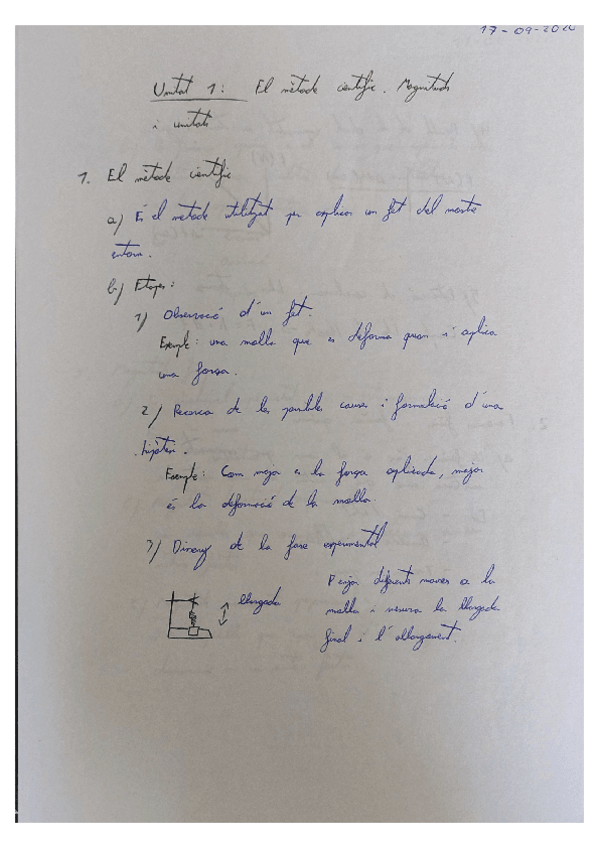 17-09-20
Unitat 1: El mètode científic. Magnituds
i unitats
1. El mètode científic
a) És el metode utilitzat per explicar un fet del nostre
entorn.
b) Etapes:
1) Observació d'un fet.
Exemple: una molla que es deforma quan s'aplica
una força.
2) Recerca de les possibles causes i formulació d'una
hipòtesi.
Exemple: Com major es la força aplicada, major
és la deformació de la molla.
3) Disseny de la fase experimental
llargada
Penjar diferents masses a la
molla i mesurar la llargada
final i l'allargament.